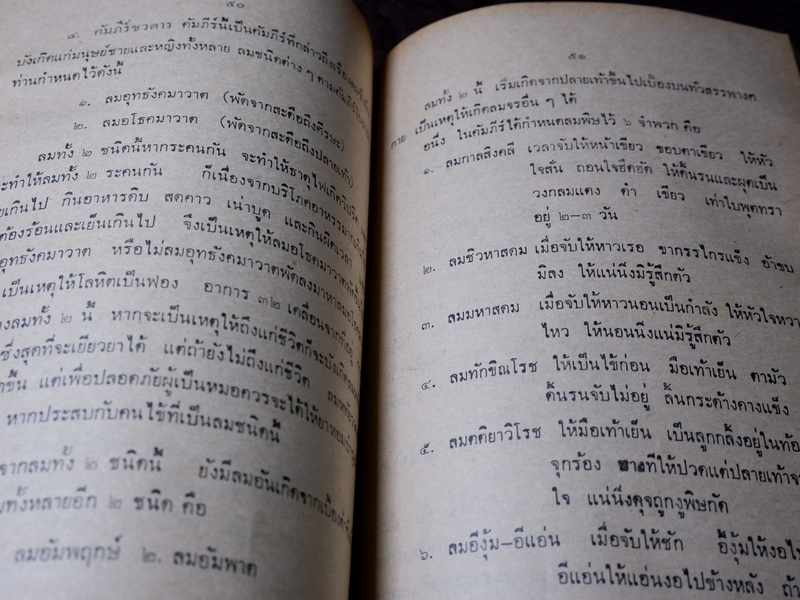 ๕๐
๔. คัมภีร์ชวดาร คัมภีร์นี้เป็นคัมภีร์ที่กล่าวถึงเรื่อง
บังเกิดแก่มนุษย์ชายและหญิงทั้งหลาย ลมชนิดต่าง ๆ ตามคัมภีร์
ท่านกำหนดไว้ดังนี้
๑. ลมอุทธังคมาวาต (พัดจากสะดือถึงศีรษะ)
๒. ลมอโธคมาวาต (พัดจากสะดือถึงปลายเท้า)
ลมทั้ง ๒ ชนิดนี้หากระคนกัน จะทำให้ธาตุไฟเกิดวิปริต
จะทำให้ลมทั้ง ๒ ระคนกัน ก็เนื่องจากบริโภคอาหาร
เกินไป กินอาหารดิบ สดคาว เน่าบูด และกินผิดเวลา
ต้องร้อนและเย็นเกินไป จึงเป็นเหตุให้ลมอโธคมาวาต
อุทธังคมาวาต หรือไม่ลมอุทธังคมาวาตพัดลงมาหา
เป็นเหตุให้โลหิตเป็นฟอง อาการ ๓๒ เคลื่อนจากที่อยู่
ลมทั้ง ๒ นี้ หากจะเป็นเหตุให้ถึงแก่ชีวิตก็จะบังเกิด
ซึ่งสุดที่จะเยียวยาได้ แต่ถ้ายังไม่ถึงแก่ชีวิต
ขึ้น แต่เพื่อปลอดภัยผู้เป็นหมอควรจะได้ให้ยาหอม
หากประสบกับคนไข้ที่เป็นลมชนิดนี้
จากลมทั้ง ๒ ชนิดนี้ ยังมีลมอันเกิดจากเบื้อง
ทั้งหลายอีก ๒ ชนิด คือ
ลมอัมพฤกษ์ ๒. ลมอัมพาต
๕๑
ลมทั้ง ๒ นี้ เริ่มเกิดจากปลายเท้าขึ้นไปเบื้องบนทั่วสรรพางค
กาย เป็นเหตุให้เกิดลมจรอื่น ๆ ได้
อนึ่ง ในคัมภีร์ได้กำหนดลมพิษไว้ ๖ จำพวก คือ
๑. ลมกาลสิงคลี เวลาจับให้หน้าเขียว ขอบตาเขียว ให้หัว
ใจสั่น ถอนใจฮึดฮัด ให้ดิ้นรนและผุดเป็น
วงกลมแดง ดำ เขียว เท่าใบพุดทรา
อยู่ ๒–๓ วัน
๒. ลมชิวหาสดม เมื่อจับให้หาวเรอ ขากรรไกรแข็ง อ้าขบ
มิลง ให้แน่นิ่งมิรู้สึกตัว
๓. ลมมหาสดม เมื่อจับให้หาวนอนเป็นกำลัง ให้หัวใจหวา
ไหว ให้นอนนิ่งแน่มิรู้สึกตัว
๔. ลมทักขิณโรช ให้เป็นไข้ก่อน มือเท้าเย็น ตามัว
ดิ้นรนจับไม่อยู่ ลิ้นกระด้างคางแข็ง
๕. ลมตติยาวิโรช ให้มือเท้าเย็น เป็นลูกกลิ้งอยู่ในท้อ
จุกร้อง บางทีให้ปวดแต่ปลายเท้าจ
ใจ แน่นิ่งดุจถูกงูพิษกัด
๖. ลมอีงุ้ม–อีแอ่น เมื่อจับให้ชัก อีงุ้มให้งอไป
อีแอ่นให้แอ่นงอไปข้างหลัง ถ้า